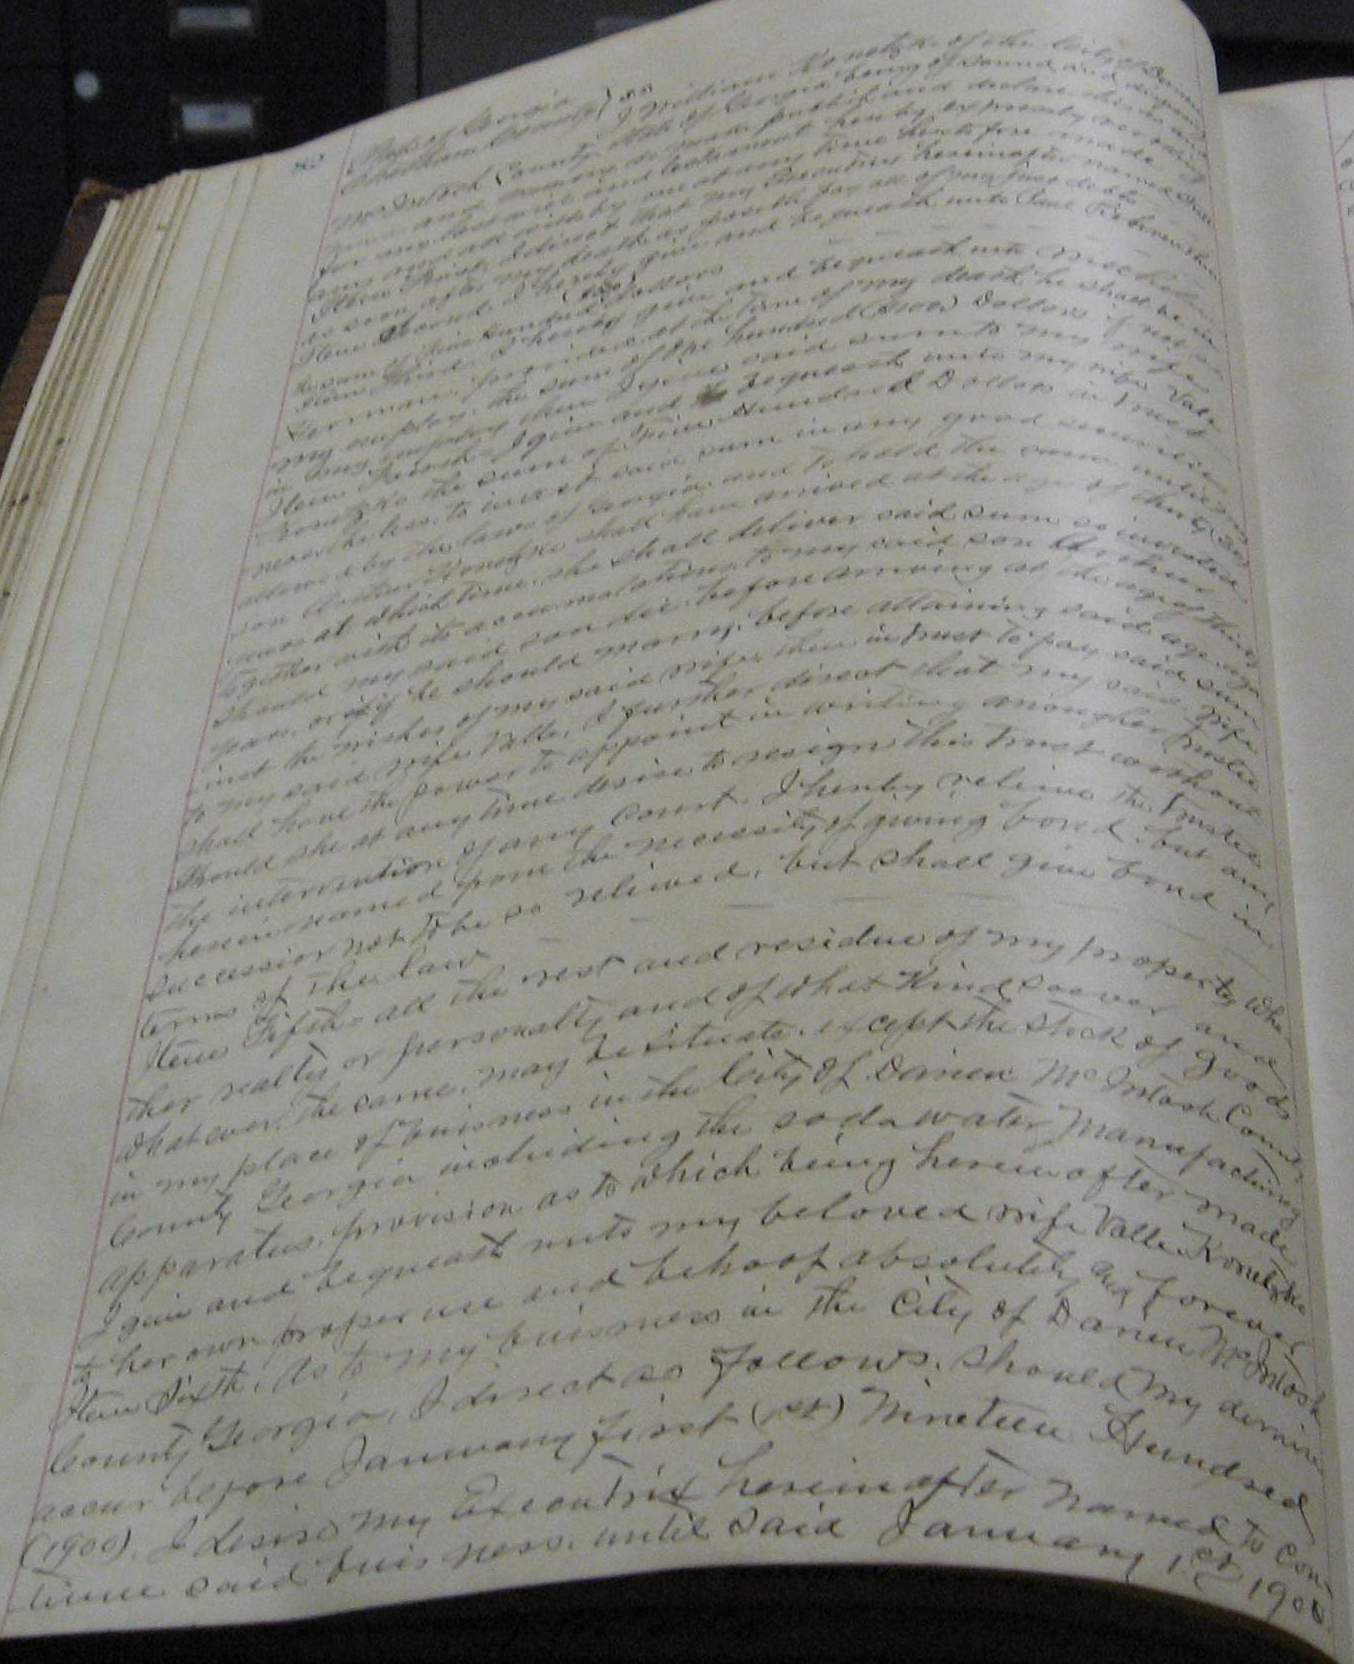 State of Georgia
Chatham County } SS
I William Konetzko of the City of Darien
McIntosh County State of Georgia being of sound and disposing
mind and memory do make publish and declare this as and
for my last will and testament hereby expressly revoking
any and all wills by me at any time heretofore made.
Item First. I direct that my Executrix hereinafter named shall
as soon after my death as possible pay all of my just debts
Item Second. I hereby give and bequeath unto
the sum of Five hundred Dollars
Item Third. I hereby give and bequeath unto
Herman provided at the time of my death he shall be in
my employ, the sum of One hundred (100) Dollars if not
in my employ then I give said sum to my wife
Item Fourth. I give and bequeath unto my wife Valle
Konetzko the sum of Five Hundred Dollars in trust
nevertheless, to invest said sum in any good securities
allowed by the laws of Georgia and to hold the same until my
son Arthur Konetzko shall have arrived at the age of thirty (30)
years at which time, she shall deliver said sum so invested
together with its accumulations to my said son Arthur
should my said son die before arriving at the age of thirty
years, or if he should marry, before attaining said age aga
inst the wishes of my said wife, then in trust to pay said sum
to my said wife Valle. I further direct that my said wife
shall have the power to appoint in writing another trustee
should she at any time desire to resign this trust without
the intervention of any Court. I hereby relieve the Trustee
herein named from the necessity of giving bond but any
successor not to be so relieved, but shall give bond in
terms of the law
Item Fifth - all the rest and residue of my property whe
ther realty or personalty and of what Kind soever and
whatever, the same, may be situate, except the stock of goods
in my place of buisness in the City of Darien McIntosh County
County Georgia including the soda water Manufacting
apparatus, provision as to which being herein after made
I give and bequeath unto my beloved wife Valle Konetzko
to her own proper use and behoof absolutely and forever
Item Sixth. As to my buisness in the City of Darien McIntosh
County Georgia, I direct as follows. should my demise
occur before January first (1st) Nineteen Hundred
(1900). I desire my Executrix hereinafter named to con-
tinue said buisness, until said January 1st 1900